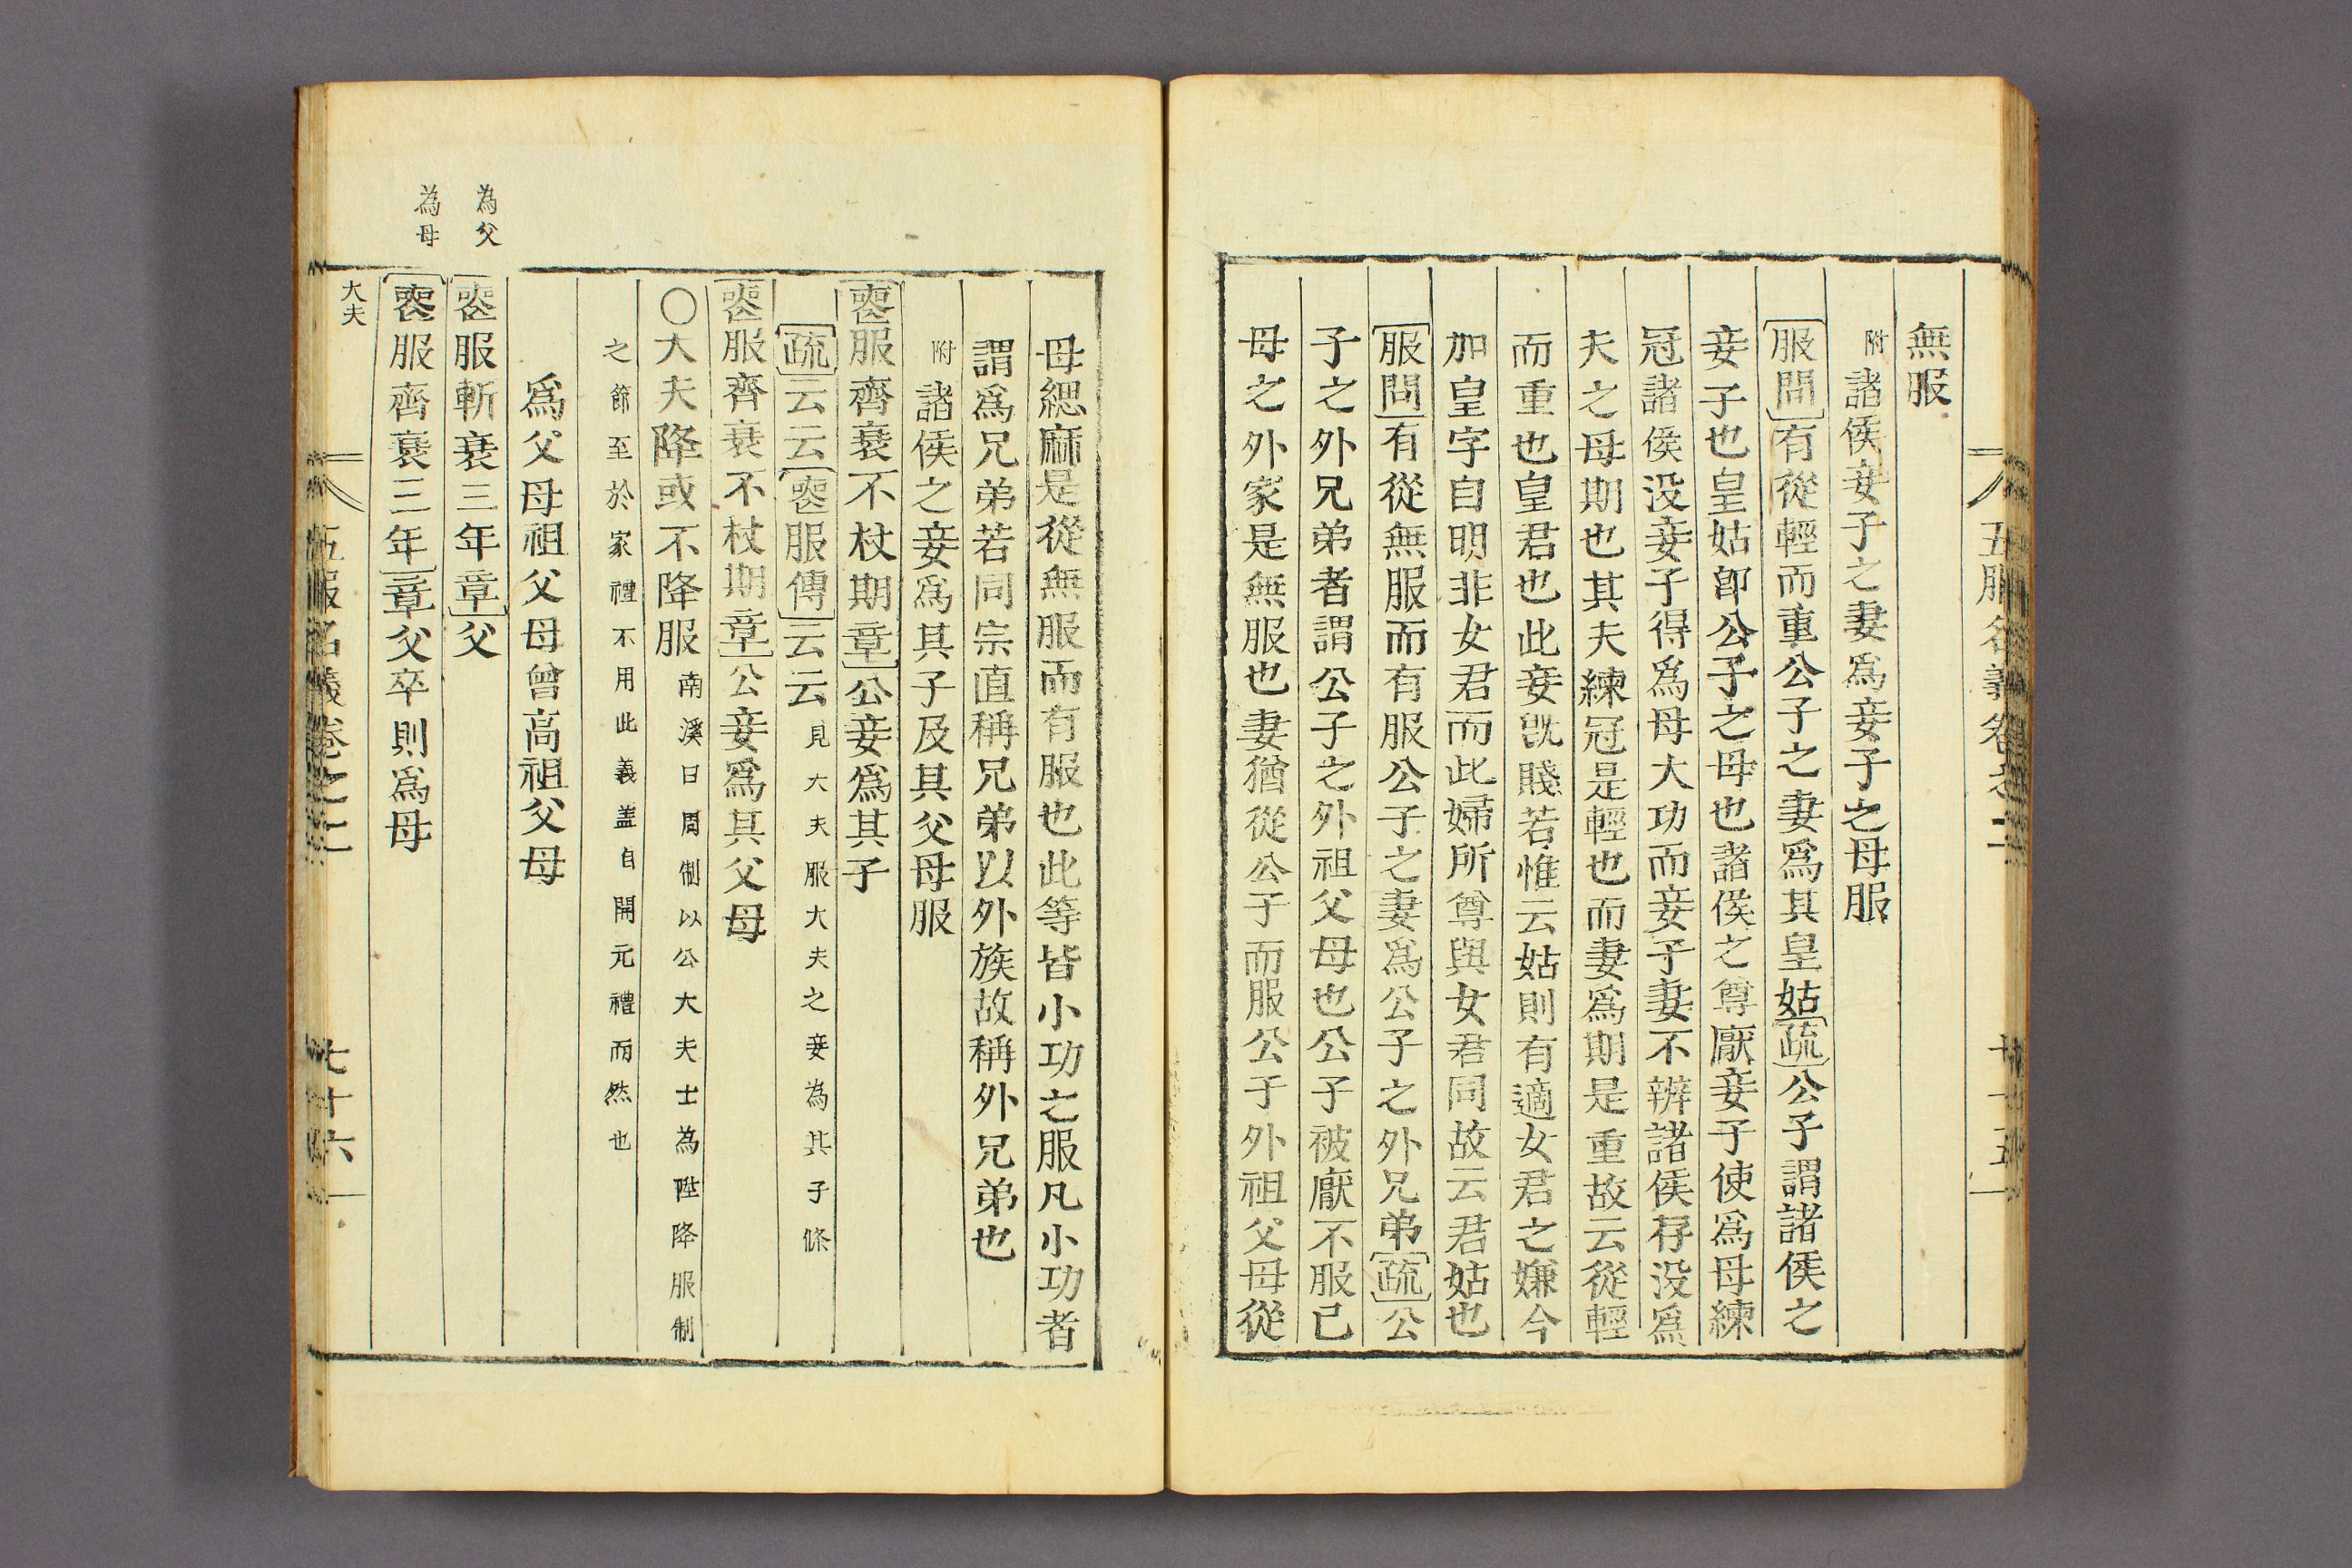 無服
附諸侯妾子之妻爲妾子之母服
服問有從輕而重公子之妻爲其皇姑疏公子謂諸侯之
妾子也皇姑卽公子之母也諸侯之尊厭妾子使爲母練
冠諸侯没妾子得爲母大功而妾子妻不辨諸侯存没爲
夫之母期也其夫練冠是輕也而妻爲期是重故云從輕
而重也皇君也此妾旣賤若惟云姑則有適女君之嫌今
加皇字自明非女君而此婦所尊與女君同故云君姑也
服問有從無服而有服公子之妻爲公子之外兄弟疏公
子之外兄弟者謂公子之外祖父母也公子被厭不服已
母之外家是無服也妻猶從公子而服公子外祖父母從
母緦麻是從無服而有服也此等皆小功之服凡小功者
謂爲兄弟若同宗直稱兄弟以外族故稱外兄弟也
附諸侯之妾爲其子及其父母服
喪服齊衰不杖期章公妾爲其子
疏云云喪服傳云云見大夫服大夫之妾為其子條
喪服齊衰不杖期章公妾爲其父母
〇大夫降或不降服南溪曰周制以公大夫士為陞降服制
之節至於家禮不用此義盖自開元禮而然也
爲父母祖父母曾高祖父母
為父
喪服斬衰三年章父
為母
喪服齊衰三年章父卒則爲母
大夫
五服名義卷之二
七十六